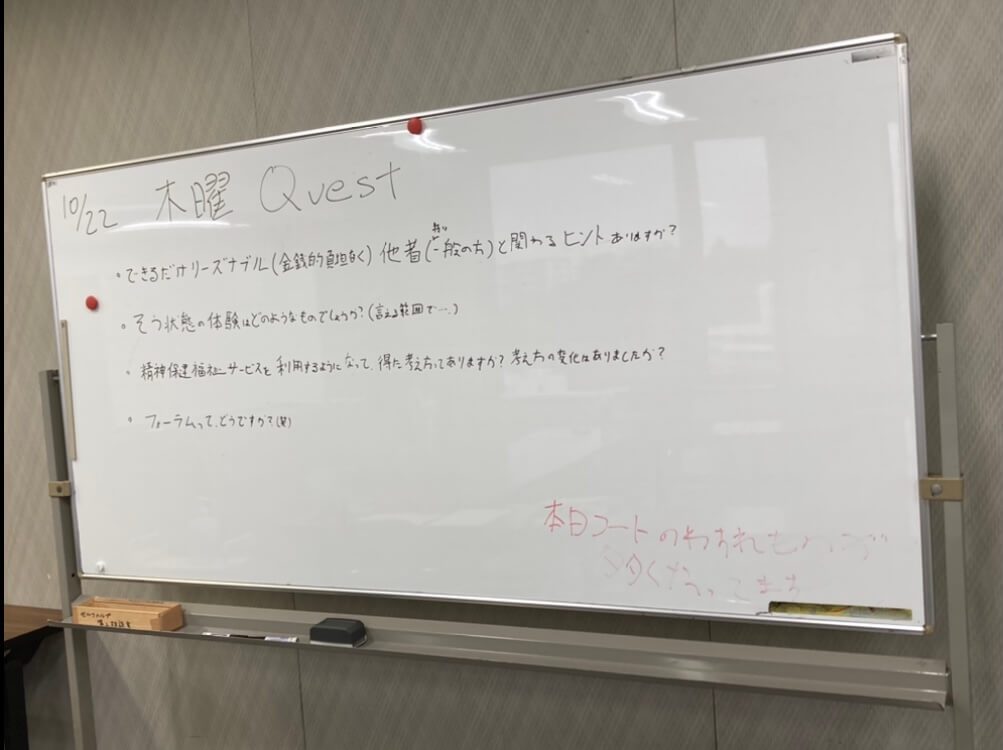 10/22 木曜 Quest
・できるだけリーズナブル(金銭的負担なく)他者(一般の方)と関わるヒントありますか?
・そう状態の体験はどのようなものでしょうか?(言える範囲で…。)
・精神保健福祉サービスを利用するようになって、得た考え方ってありますか? 考え方の変化はありましたか?
・フォーラムって、どうですか?(笑)
本日コートのわすれものが
多くなってます
セルフヘルプ